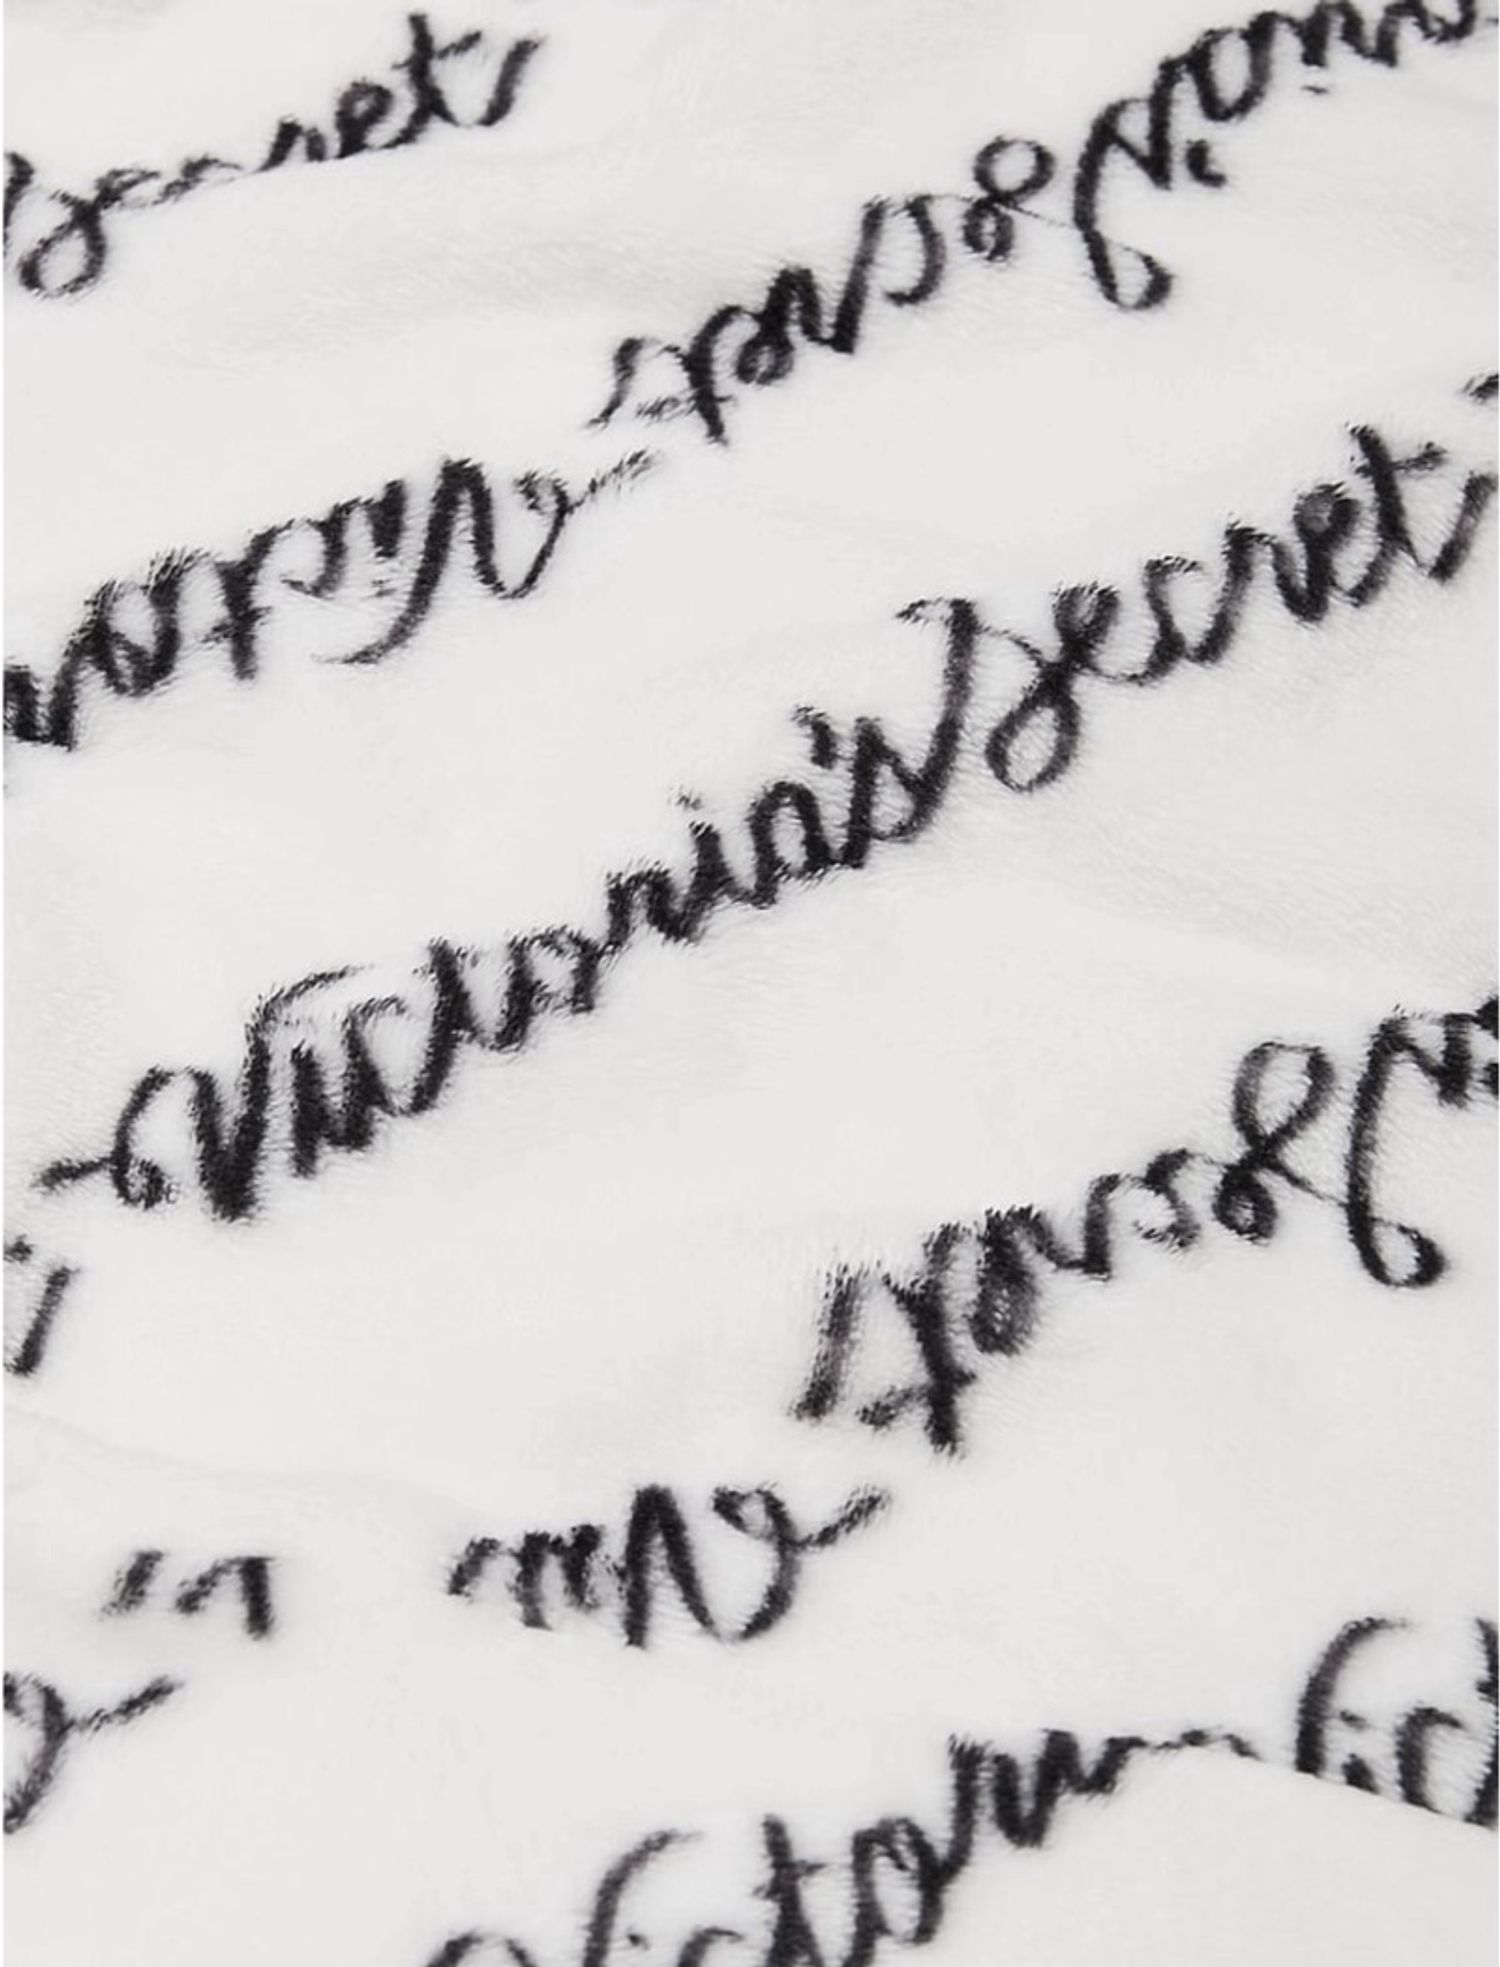 Secret
Victoria's Secret
Victoria's Secret
Victoria's Secret
Victoria